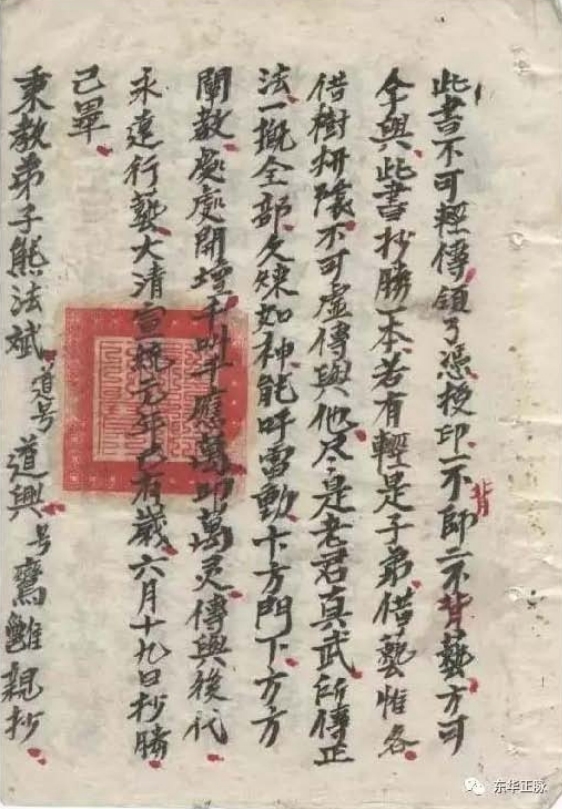 此書不可輕傳領了憑授印一不師二不背藝方可
背
今與此書抄謄一本若有輕是子弟借藝惟各
借樹研隊不可虛傳與他尽是老君真武所傳正
法一概全部久煉如神能吽雷動十方門下方方
闡教處處開壇千叫千應萬叩萬灵傳與後代
永遠行藝大清宣統元年己酉歲六月十九日抄謄
己畢
秉教弟子熊法斌道号道興号鸞 親抄
东华正脉